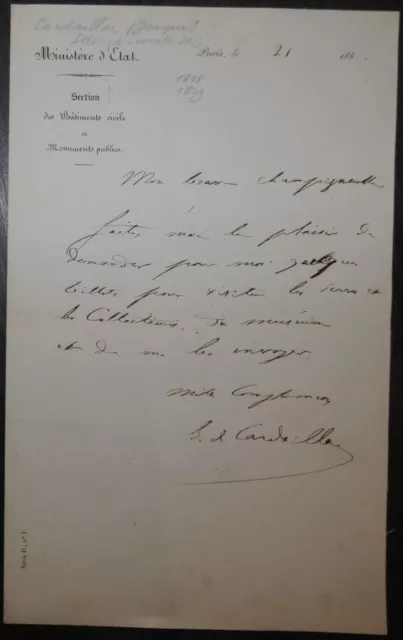 Cardaillac
Ministère d'Etat.
Paris, le 21 185
Section
des Bâtiments civils
et
Monuments publics.
Mon brave Champigneulle
faites moi le plaisir de
demander pour moi quelques
billets pour visiter les serres et
les Collections du muséum
et de me les envoyer.
Mille Compliments
S. de Cardaillac
Série D, nº 1.